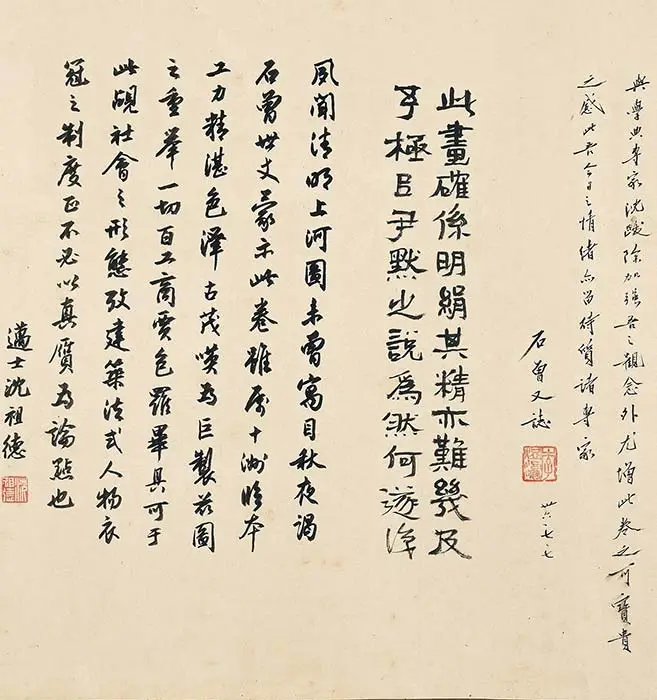 與學典專家沈跋除加強吾之觀念外尤增此卷之可寶貴
之感此吾今日之情緒留待質諸專家
石曾又誌
卅六七七
此畫確係明絹其精亦難幾及
予極㠯尹默之說爲然何遂
夙聞清明上河圖未曾寓目秋夜謁
石曾世丈蒙示此卷雖屬十洲臨本
工力精湛色澤古茂嘆為巨製茲圖
之重舉一切百工商賈包羅畢具可于
此覘社會之形態攷建築法式人物衣
冠之制度正不必以真贋為論點也
邁士沈祖德